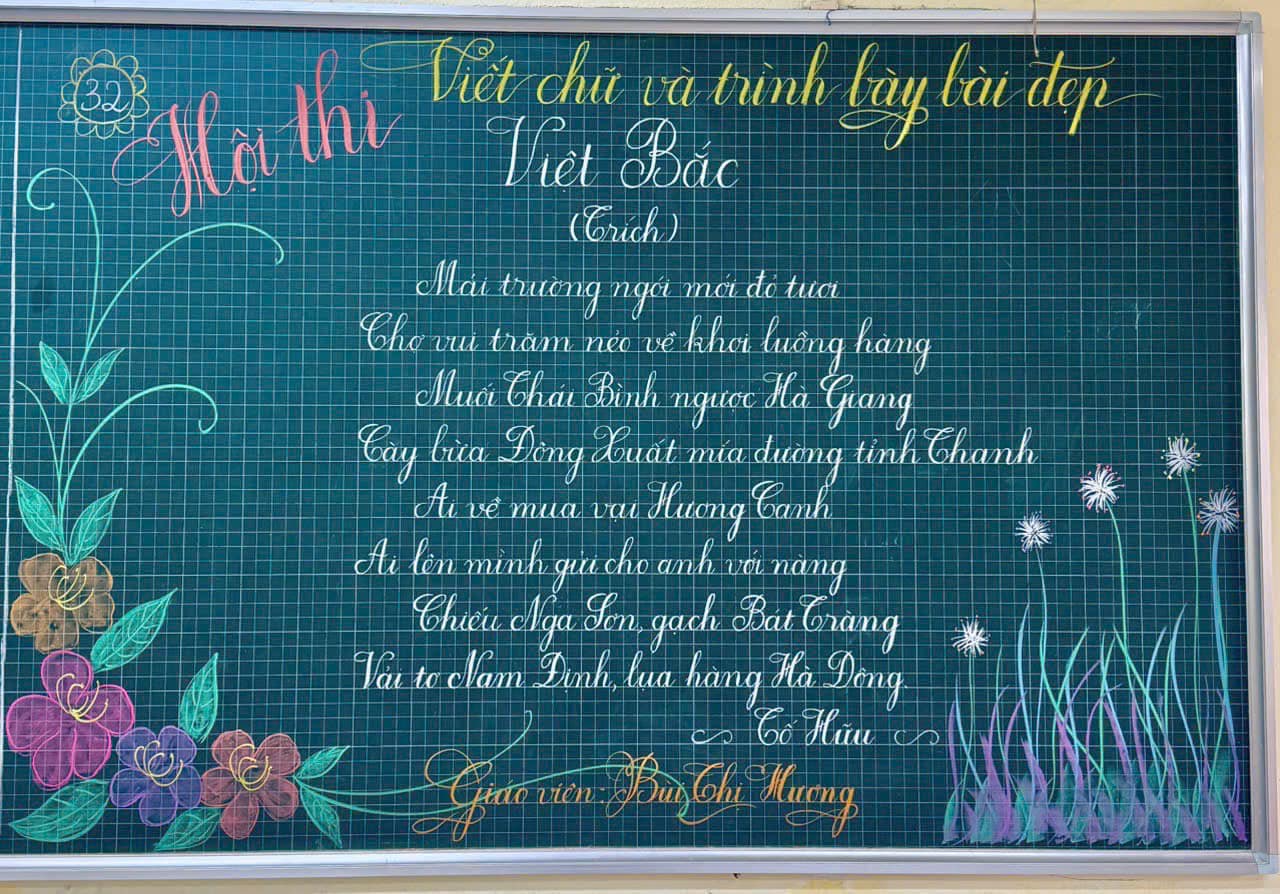 32
Hội thi
Viết chữ và trình bày bài đẹp
Việt Bắc
(Trích)
Mái trường ngói mới đỏ tươi
Chợ vui trăm nẻo về khơi luồng hàng
Muối Thái Bình ngược Hà Giang
Cày bừa Đông Xuất mía đường tỉnh Thanh
Ai về mua vại Hương Canh
Ai lên mình gửi cho anh với nàng
Chiếu Nga Sơn, gạch Bát Tràng
Vải tơ Nam Định, lụa hàng Hà Đông.
Tố Hữu
Giáo viên: Bùi Thị Hương